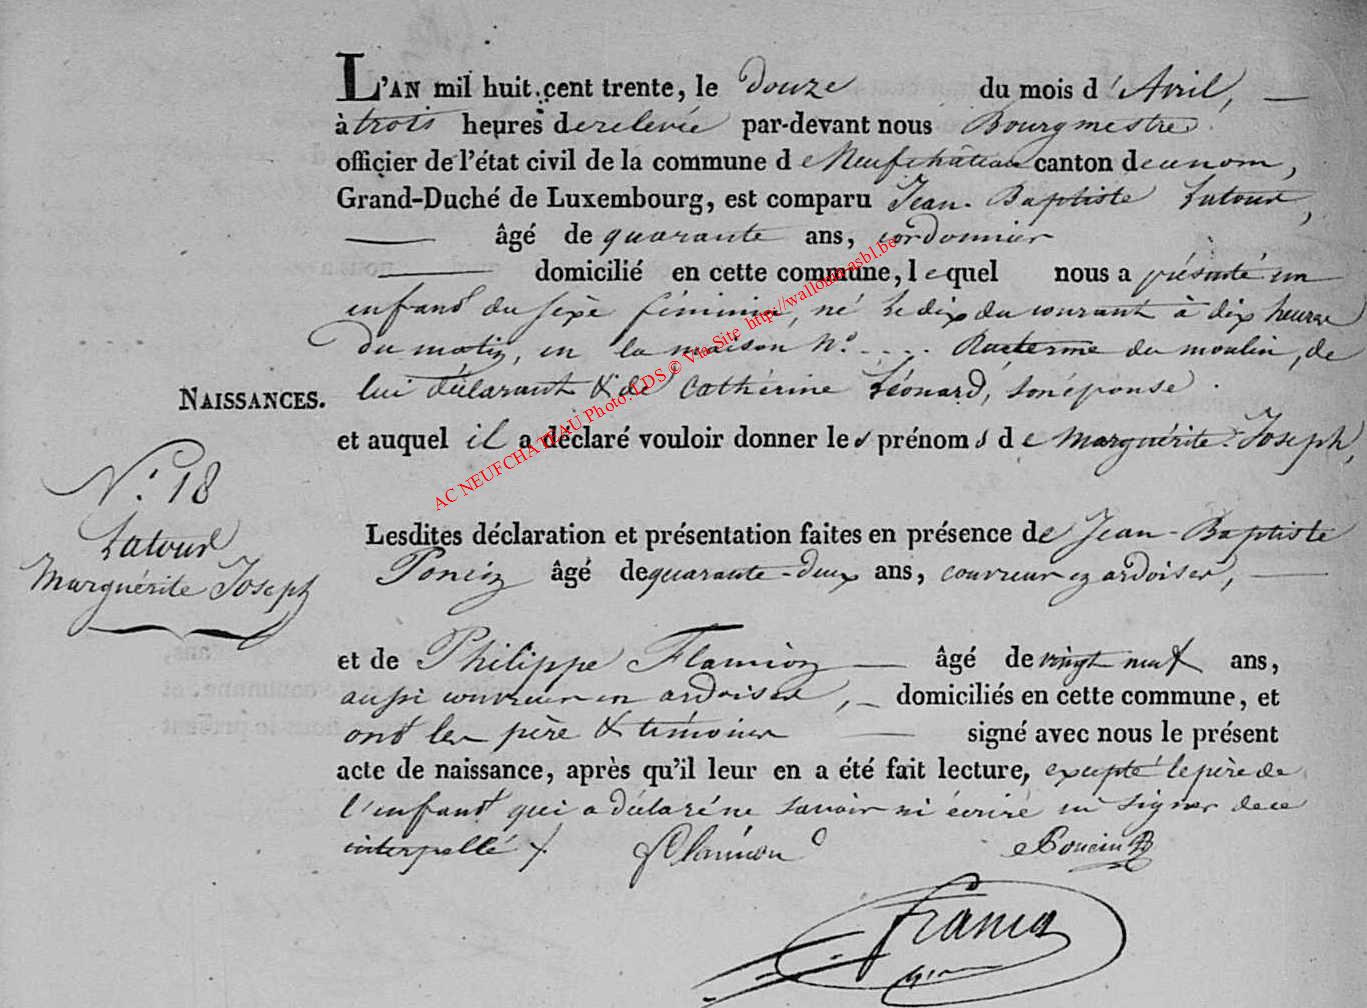 L'AN mil huit cent trente, le douze du mois d'Avril,
à trois heures de relevée par-devant nous Bourgmestre
officier de l'état civil de la commune de Neufchâteau canton de ce nom,
Grand-Duché de Luxembourg, est comparu Jean-Baptiste Latour,
âgé de quarante ans, cordonnier
domicilié en cette commune, lequel nous a présenté un
enfant du sexe féminin, né le dix du courant à dix heures
du matin, en la maison N.º .... du moulin, de
lui déclarant & de Cathérine Léonard, son épouse.
et auquel il a déclaré vouloir donner les prénoms de Marguérite-Joseph,
NAISSANCES.
N.º 18
Latour
Marguérite Joseph
Lesdites déclaration et présentation faites en présence de Jean-Baptiste
Poncin âgé de quarante-deux ans, couvreur en ardoises,
et de Philippe Flamion âgé de vingt neuf ans,
aussi couvreur en ardoises, domiciliés en cette commune, et
ont les père & témoins signé avec nous le présent
acte de naissance, après qu'il leur en a été fait lecture, excepté le père de
l'enfant qui a déclaré ne savoir ni écrire ni signer de ce
interpellé
Flamion Poncin
AC NEUFCHATEAU Photo: LDS © Via Site http://wallonia-asbl.be